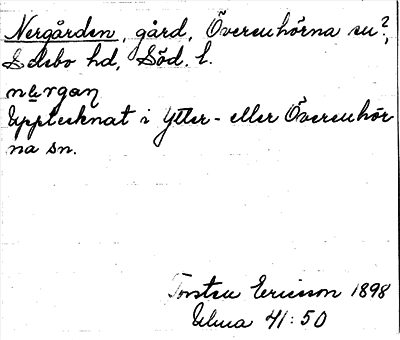 Nergården, gård, Överenhörna sn?,
Selebo hd, Söd. l.
nærgan
Upptecknat i Ytter- eller Överenhör
na sn.
Torsten Ericsson 1898
Ulma 41:50